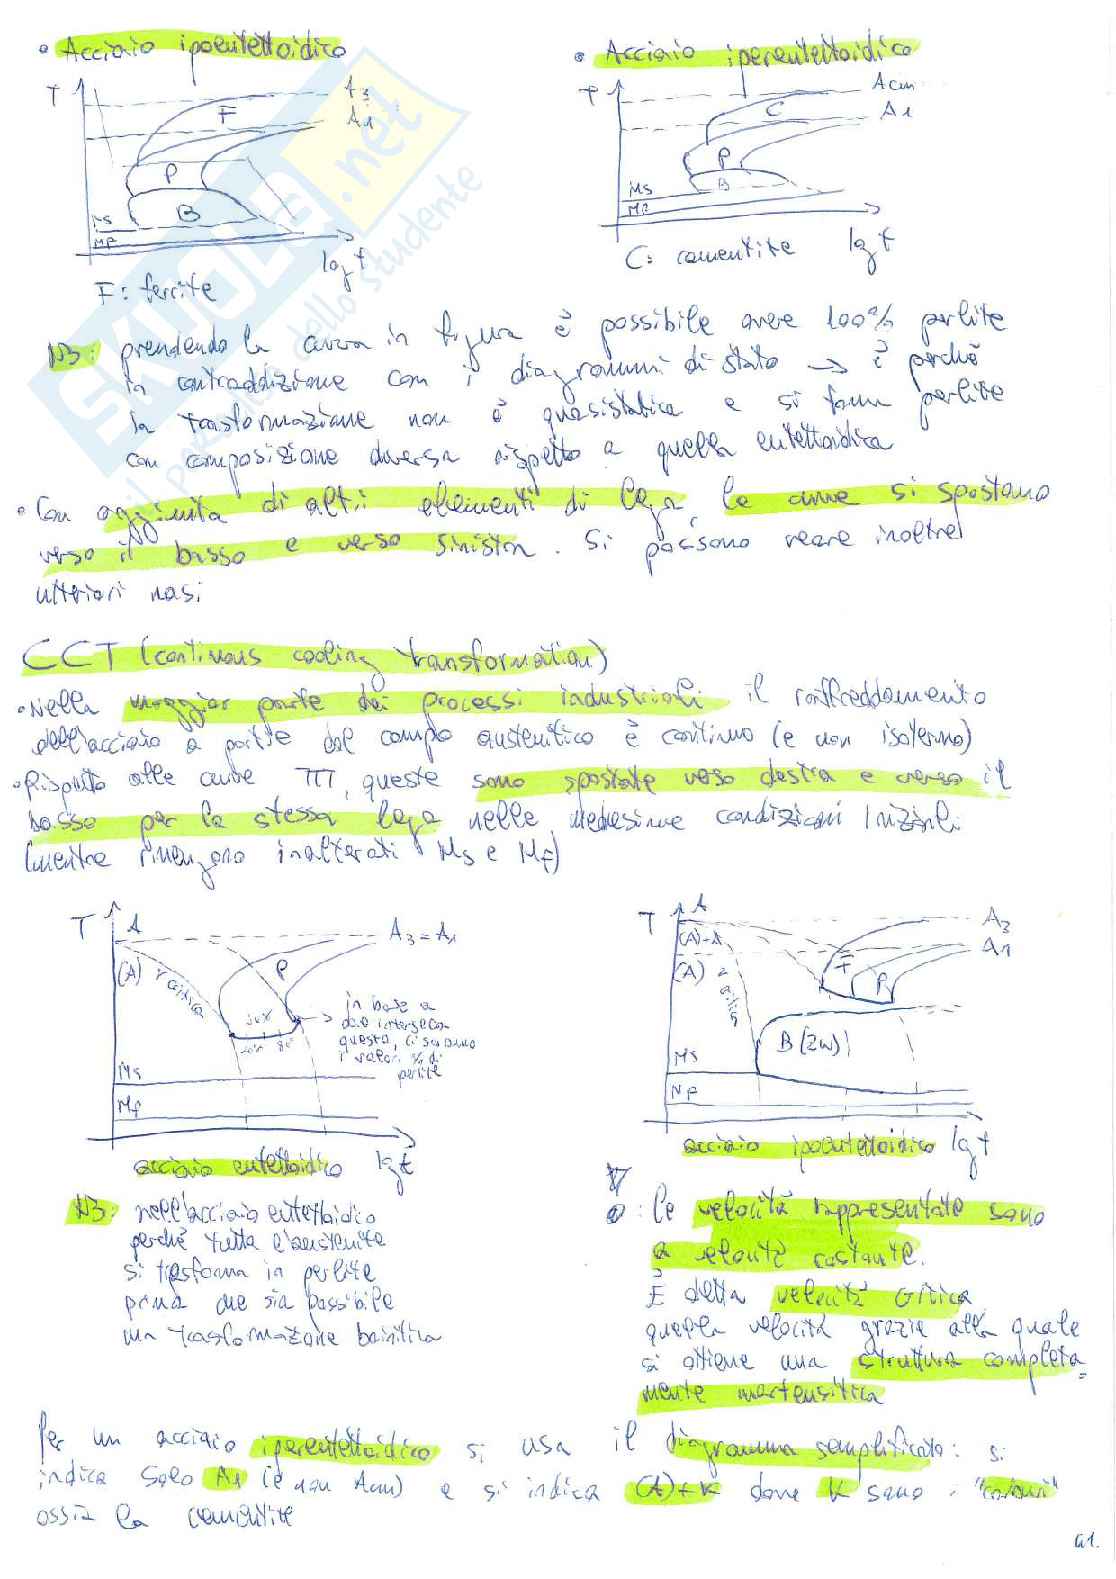 • Acciaio ipoeutettoidico
T
A3
A1
F
P
B
Ms
Mf
log t
F: ferrite
• Acciaio ipereutettoidico
T
Acm
A1
C
P
B
Ms
Mf
log t
C: cementite
NB: prendendo la curva in figura è possibile avere 100% perlite
in contraddizione con i diagrammi di stato → è perché
la trasformazione non è quasistatica e si forma perlite
con composizione diversa rispetto a quella eutettoidica
• Con aggiunta di altri elementi di lega, le curve si spostano
verso il basso e verso sinistra. Si possono creare inoltre
ulteriori nasi
CCT (continous cooling transformation)
• Nella maggior parte dei processi industriali il raffreddamento
dell'acciaio a partire dal campo austenitico è continuo (e non isotermo)
• Rispetto alle curve TTT, queste sono spostate verso destra e verso il
basso per la stessa lega nelle medesime condizioni iniziali
(mentre rimangono inalterati Ms e Mf)
T
A
A3 = A1
(A)
v critica
P
in base a
dove interseca
questa, ci saranno
i valori % di
perlite
Ms
Mf
acciaio eutettoidico
log t
T
A
A3
A1
(A)
F
P
B (Zw)
Ms
Mf
acciaio ipoeutettoidico log t
NB: nell'acciaio eutettoidico
perché tutta l'austenite
si trasforma in perlite
prima che sia possibile
una trasformazione bainitica
: le velocità rappresentate sono
a velocità costante.
È detta velocità critica
quella velocità grazie alla quale
si ottiene una struttura completa=
mente martensitica
Per un acciaio ipereutettoidico si usa il diagramma semplificato: si
indica solo A1 (e non Acm) e si indica (A)+K dove K sono i "carburi"
ossia la cementite
61.
SKUOLA.net
il paradiso dello studente